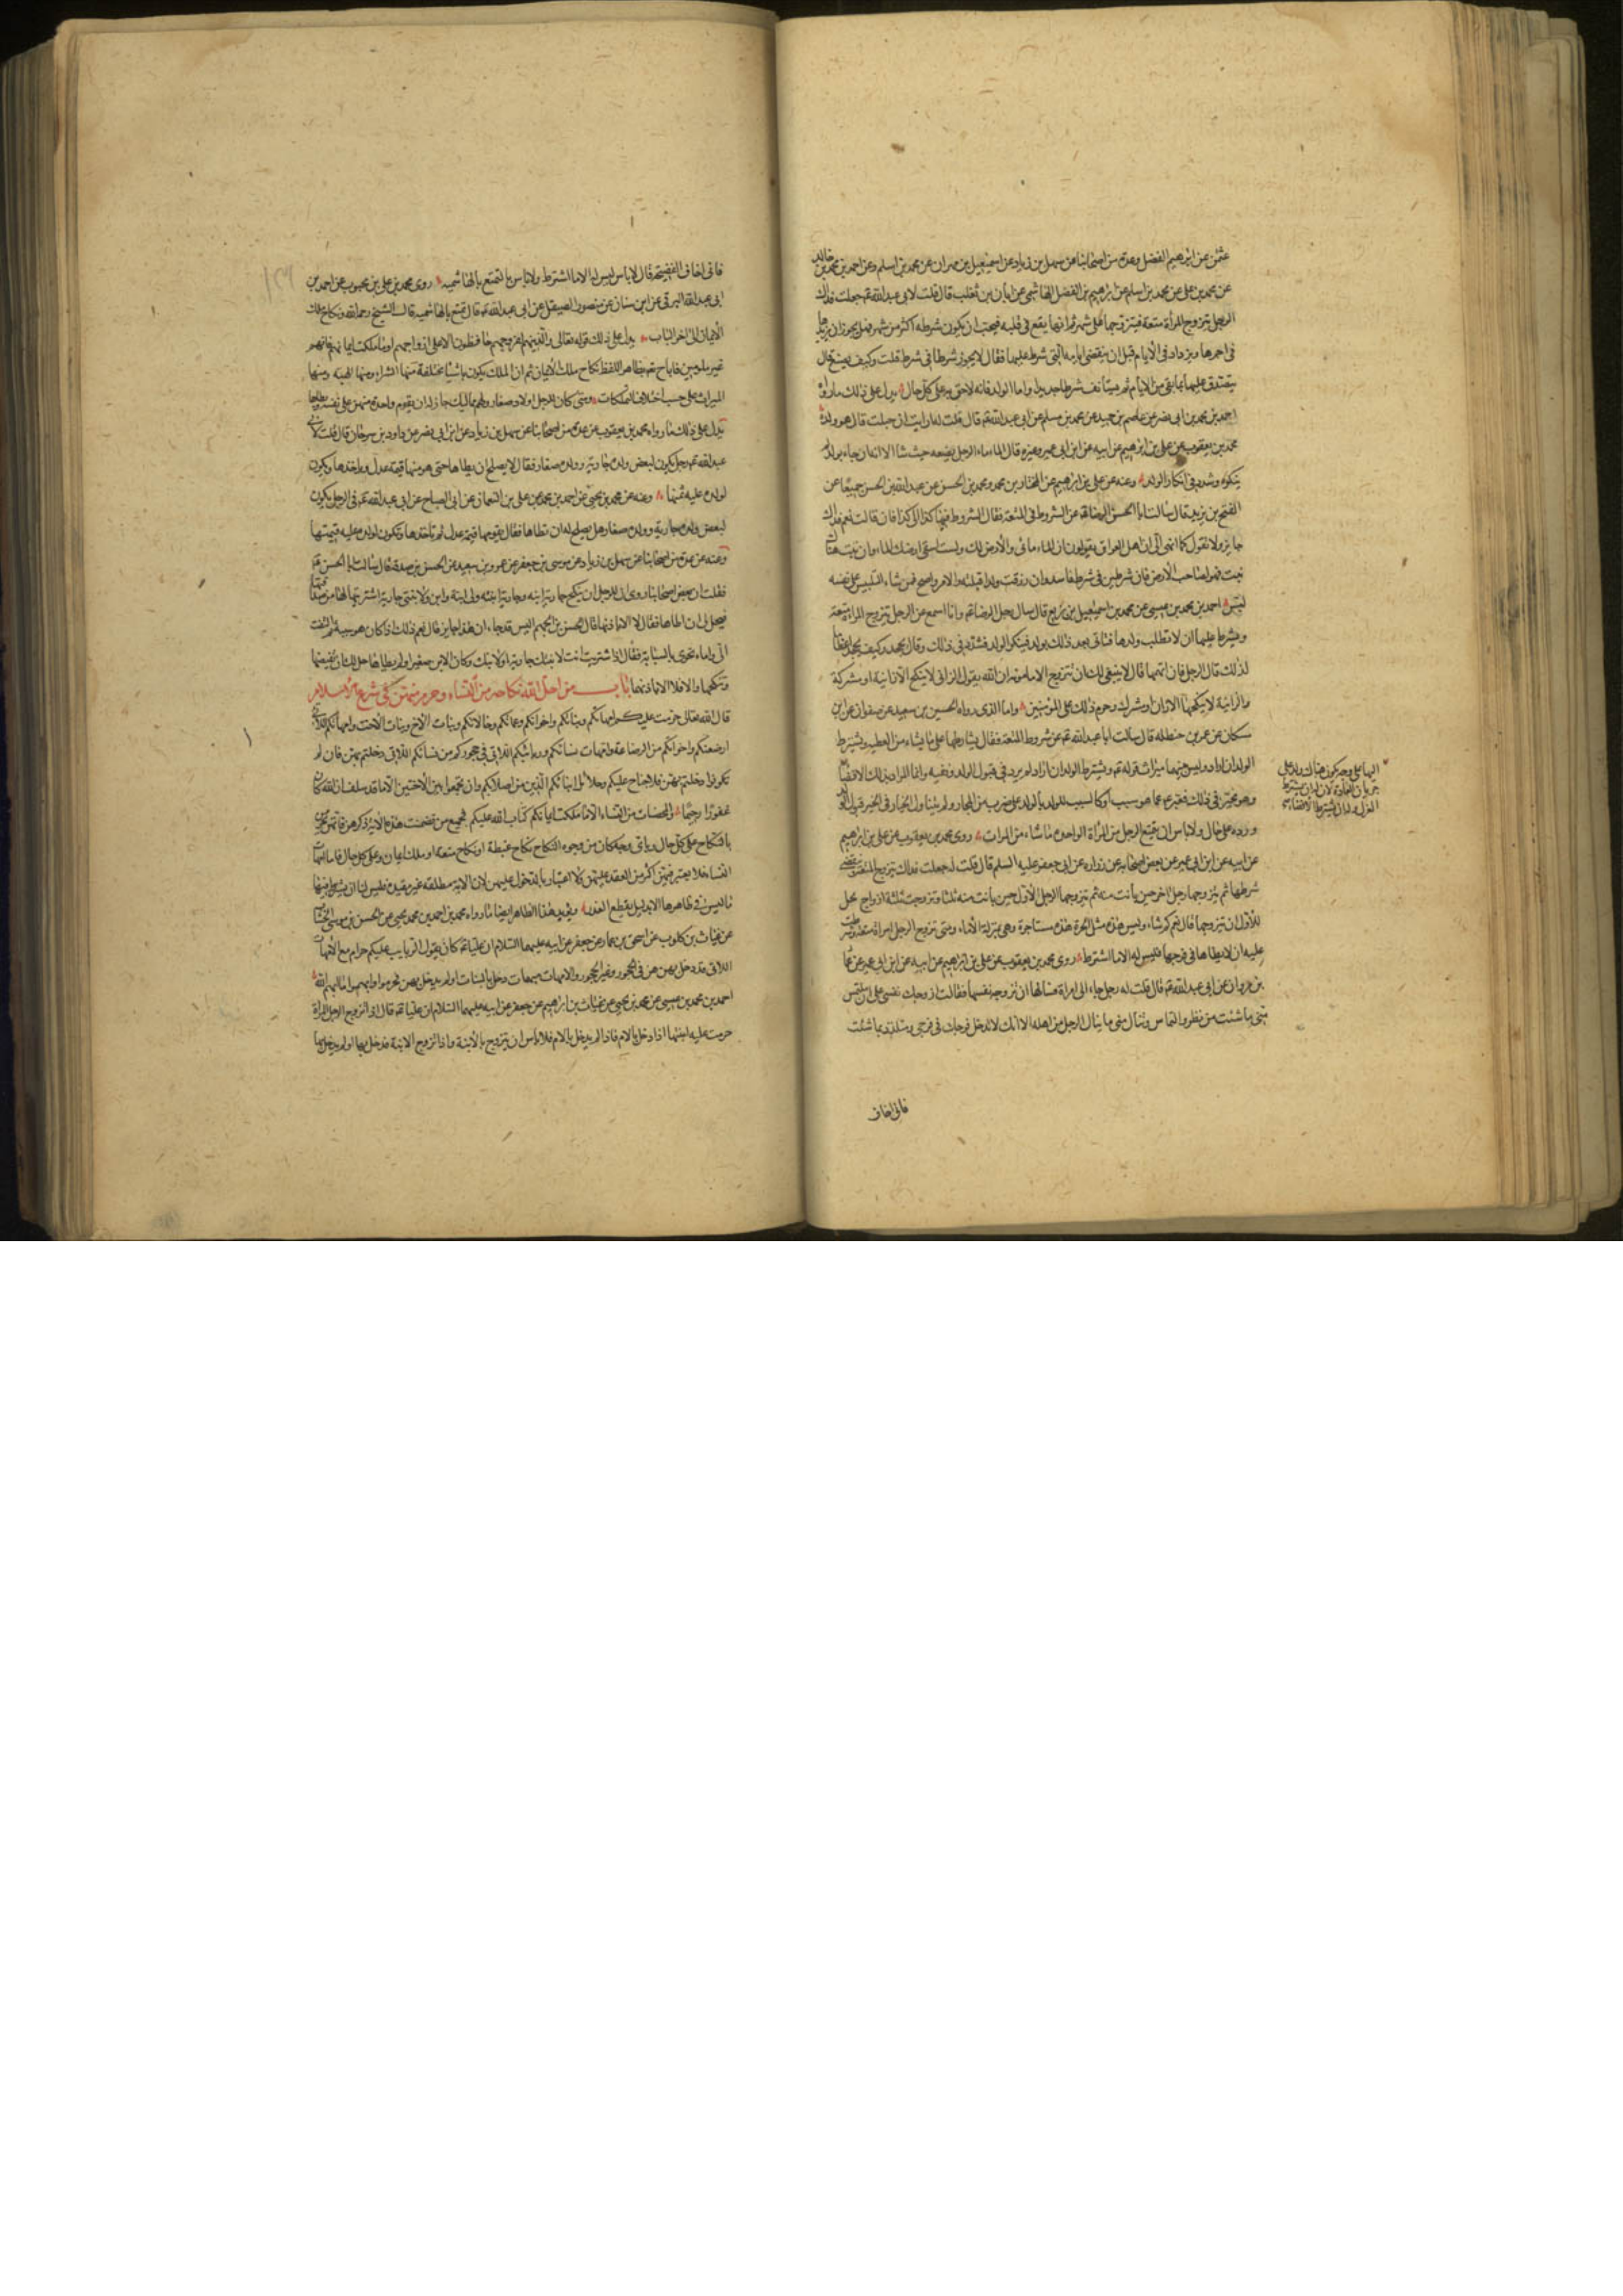 عن ابرهيم الفضل وعدة من اصحابنا عن سهل بن زياد عن اسمعيل بن مهران عن محمد بن اسلم وعن احمد بن محمد بن خالد
عن محمد بن علي عن محمد بن اسلم عن ابرهيم بن الفضل الهاشمي عن ابان بن تغلب قال قلت لابي عبد الله عم جعلت فداك
الرجل يتزوج المرأة متعة فيتزوجها على شهر ثم انها يقع في قلبه فيحب ان يكون شرطه اكثر من شهر فهل يجوز ان يزيدها
في اجرها ويزداد في الايام قبل ان ينقضي ايامه التي شرط عليها فقال لا يجوز شرطان في شرط قلت وكيف يصنع قال
يتصدق عليها بما بقي من الايام ثم يستأنف شرطا جديدا واما الولد فانه لاحق به على كل حال يدل على ذلك ما رواه
احمد بن محمد بن ابي نصر عن عاصم بن حميد عن محمد بن مسلم عن ابي عبد الله عم قال قلت له ارايت ان حبلت قال هو ولده
محمد بن يعقوب عن علي بن ابرهيم عن ابيه عن ابن ابي عمير وغيره قال الماء ماء الرجل يضعه حيث شاء الا انه ان جاء بولد لم
ينكره وشدد في انكار الولد وعنه عن علي بن ابرهيم عن المختار بن محمد ومحمد بن الحسن عن عبد الله بن الحسن جميعا عن
الفتح بن يزيد قال سالت ابا الحسن الرضا عم عن الشروط في المتعة فقال الشروط فيها كذا الى كذا فان قالت نعم فذاك
جايز ولا تقول كما انهي الي ان اهل العراق يقولون ان الماء مائي والارض لك ولست اسقي ارضك الماء وان نبت هناك
نبت فهو لصاحب الارض فان شرطين في شرط فاسد وان رزقت ولدا قبله والامر واضح فمن شاء التلبيس على نفسه
لبس احمد بن محمد بن عيسى عن محمد بن اسمعيل بن بزيع قال سال رجل الرضا عم وانا اسمع عن الرجل يتزوج المراة متعة
ويشترط عليها ان لا تطلب ولدها فتاتي بعد ذلك بولد فينكر الولد فشدد في ذلك وقال يجحد وكيف يجحد اعظاما
لذلك قال الرجل فان اتهمها قال لا ينبغي لك ان تتزوج الا مامونة ان الله يقول الزاني لا ينكح الا زانية او مشركة
والزانية لا ينكحها الا زان او مشرك وحرم ذلك على المؤمنين واما الذي رواه الحسين بن سعيد عن صفوان عن ابن
مسكان عن عمر بن حنظلة قال سالت ابا عبد الله عم عن شروط المتعة فقال يشارطها على ما يشاء من العطية ويشترط
الولد ان اراد وليس بينهما ميراث قوله عم ويشترط الولد ان اراد لم يرد في قبول الولد ونفيه وانما المراد بذلك الافضاء
وهو مخير في ذلك فعبر عما هو سبب او كالسبب للولد بالولد على ضرب من المجاز ولم يتناول الخيار في الخبر قبول الولد
ورده على حال ولا باس ان يتمتع الرجل من المراة الواحدة ما شاء من المرات روى محمد بن يعقوب عن علي بن ابرهيم
عن ابيه عن ابن ابي عمير عن بعض اصحابه عن زراره عن ابي جعفر عليه السلم قال قلت له جعلت فداك يتزوج المتعة وينقضي
شرطها ثم يتزوجها رجل اخر حين بانت منه ثم يتزوجها الرجل الاول حين بانت منه ثلثا وتزوجت ثلثة ازواج يحل
للاول ان يتزوجها قال نعم كم شاء وليس هذه مثل الحرة هذه مستاجرة وهي بمنزلة الاماء ومتى تزوج الرجل امراة متعة وشرطت
عليه ان لا يطاها في فرجها فليس له الا ما اشترط روى محمد بن يعقوب عن علي بن ابرهيم عن ابيه عن ابن ابي عمير عن عمار
بن مروان عن ابي عبد الله عم قال قلت له رجل جاء الى امراة فسالها ان تزوجه نفسها فقالت ازوجك نفسي على ان تلتمس
مني ما شئت من نظر والتماس وتنال مني ما ينال الرجل من اهله الا انك لا تدخل فرجك في فرجي وتتلذذ بما شئت
فاني اخاف
فاني اخاف الفضيحة قال لا باس ليس له الا ما اشترط ولا باس بالتمتع بالهاشمية روى محمد بن علي بن محبوب عن احمد بن
ابي عبد الله البرقي عن ابن سنان عن منصور الصيقل عن ابي عبد الله عم قال تمتع بالهاشمية قال الشيخ رحمه الله ونكاح ملك
الايمان الى اخر الباب يدل على ذلك قوله تعالى والذين هم لفروجهم حافظون الا على ازواجهم او ما ملكت ايمانهم فانهم
غير ملومين فاباح عم بظاهر اللفظ نكاح ملك الايمان ثم ان الملك يكون باشياء مختلفة منها الشراء ومنها الهبة ومنها
الميراث على حسب اختلاف التملكات ومتى كان للرجل اولاد صغار ولهم مماليك جاز له ان يقوم واحدة منهن على نفسه ويطاها
يدل على ذلك ما رواه محمد بن يعقوب عن عدة من اصحابنا عن سهل بن زياد عن ابن ابي نصر عن داود بن سرحان قال قلت لابي
عبد الله عم رجل يكون لبعض ولده جارية وولده صغار فقال لا يصلح ان يطاها حتى يقومها قيمة عدل وياخذها ويكون
لولده عليه ثمنها وعنه عن محمد بن يحيى عن احمد بن محمد عن علي بن النعمان عن ابي الصباح عن ابي عبد الله عم في الرجل يكون
لبعض ولده جارية وولده صغار هل يصلح له ان يطاها فقال يقومها قيمة عدل ثم ياخذها ويكون لولده عليه قيمتها
وعنه عن عدة من اصحابنا عن سهل بن زياد عن موسى بن جعفر عن عمرو بن سعيد عن الحسن بن صدقة قال سالت ابا الحسن عم
فقلت ان بعض اصحابنا روى ان للرجل ان ينكح جارية ابنه وجارية ابنته ولي ابنة وابن ولابنتي جارية اشتريتها لها من صداقها
فيحل لي ان اطاها فقال لا الا باذنها قال الحسن بن الجهم اليس قد جاء ان هذا جايز قال نعم ذلك اذا كان هو سببه ثم التفت
الي واماء نحوي بالسبابة فقال اذا اشتريت انت لابنتك جارية او لابنك وكان الابن صغيرا ولم يطاها حل لك ان تقبضها
وتنكحها والا فلا الا باذنهما باب من احل الله نكاحه من النساء وحرم منهن في شرع الاسلام
قال الله تعالى حرمت عليكم امهاتكم وبناتكم واخواتكم وعماتكم وخالاتكم وبنات الاخ وبنات الاخت وامهاتكم اللاتي
ارضعنكم واخواتكم من الرضاعة وامهات نسائكم وربائبكم اللاتي في حجوركم من نسائكم اللاتي دخلتم بهن فان لم
تكونوا دخلتم بهن فلا جناح عليكم وحلائل ابنائكم الذين من اصلابكم وان تجمعوا بين الاختين الا ما قد سلف ان الله كان
غفورا رحيما والمحصنات من النساء الا ما ملكت ايمانكم كتاب الله عليكم فجميع من تضمنت هذه الاية ذكرهن فانهن يحرمن
بالنكاح على كل حال وباي وجه كان من وجوه النكاح نكاح غبطة او نكاح متعة او ملك ايمان وعلى كل حال فاما امهات
النساء فلا يعتبر فيهن اكثر من العقد عليهن ولا اعتبار بالدخول عليهن لان الاية مطلقة غير مقيدة فليس لنا ان نشرط فيها
ما ليس في ظاهرها الا بدليل يقطع العذر ويؤيد هذا الظاهر ايضا ما رواه محمد بن احمد بن محمد يحيى عن الحسن بن موسى الخشاب
عن غياث بن كلوب عن اسحق بن عمار عن جعفر عن ابيه عليهما السلام ان عليا عم كان يقول الربايب عليكم حرام مع الامهات
اللاتي قد دخل بهن هن في الحجور وغير الحجور والامهات مبهمات دخل بالبنات او لم يدخل بهن فحرموا وابهموا ما ابهم الله
احمد بن محمد بن عيسى عن محمد بن يحيى عن غياث بن ابرهيم عن جعفر عن ابيه عليهما السلام ان عليا عم قال اذا تزوج الرجل المراة
حرمت عليه ابنتها اذا دخل بالام فاذا لم يدخل بالام فلا باس ان يتزوج بالابنة واذا تزوج الابنة فدخل بها او لم يدخل بها